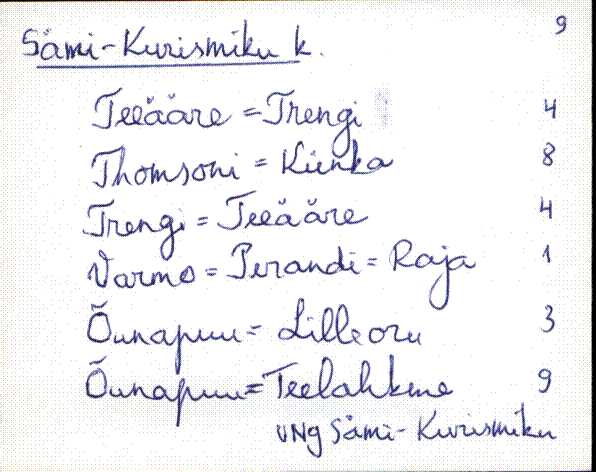 Sämi-Kurismiku k. 9
Teeääre = Trengi 4
Thomsoni = Kiinka 8
Trengi = Teeääre 4
Varmo = Perandi = Raja 1
Õunapuu = Lilleoru 3
Õunapuu = Teelahkme 9
VNg Sämi-Kurismiku